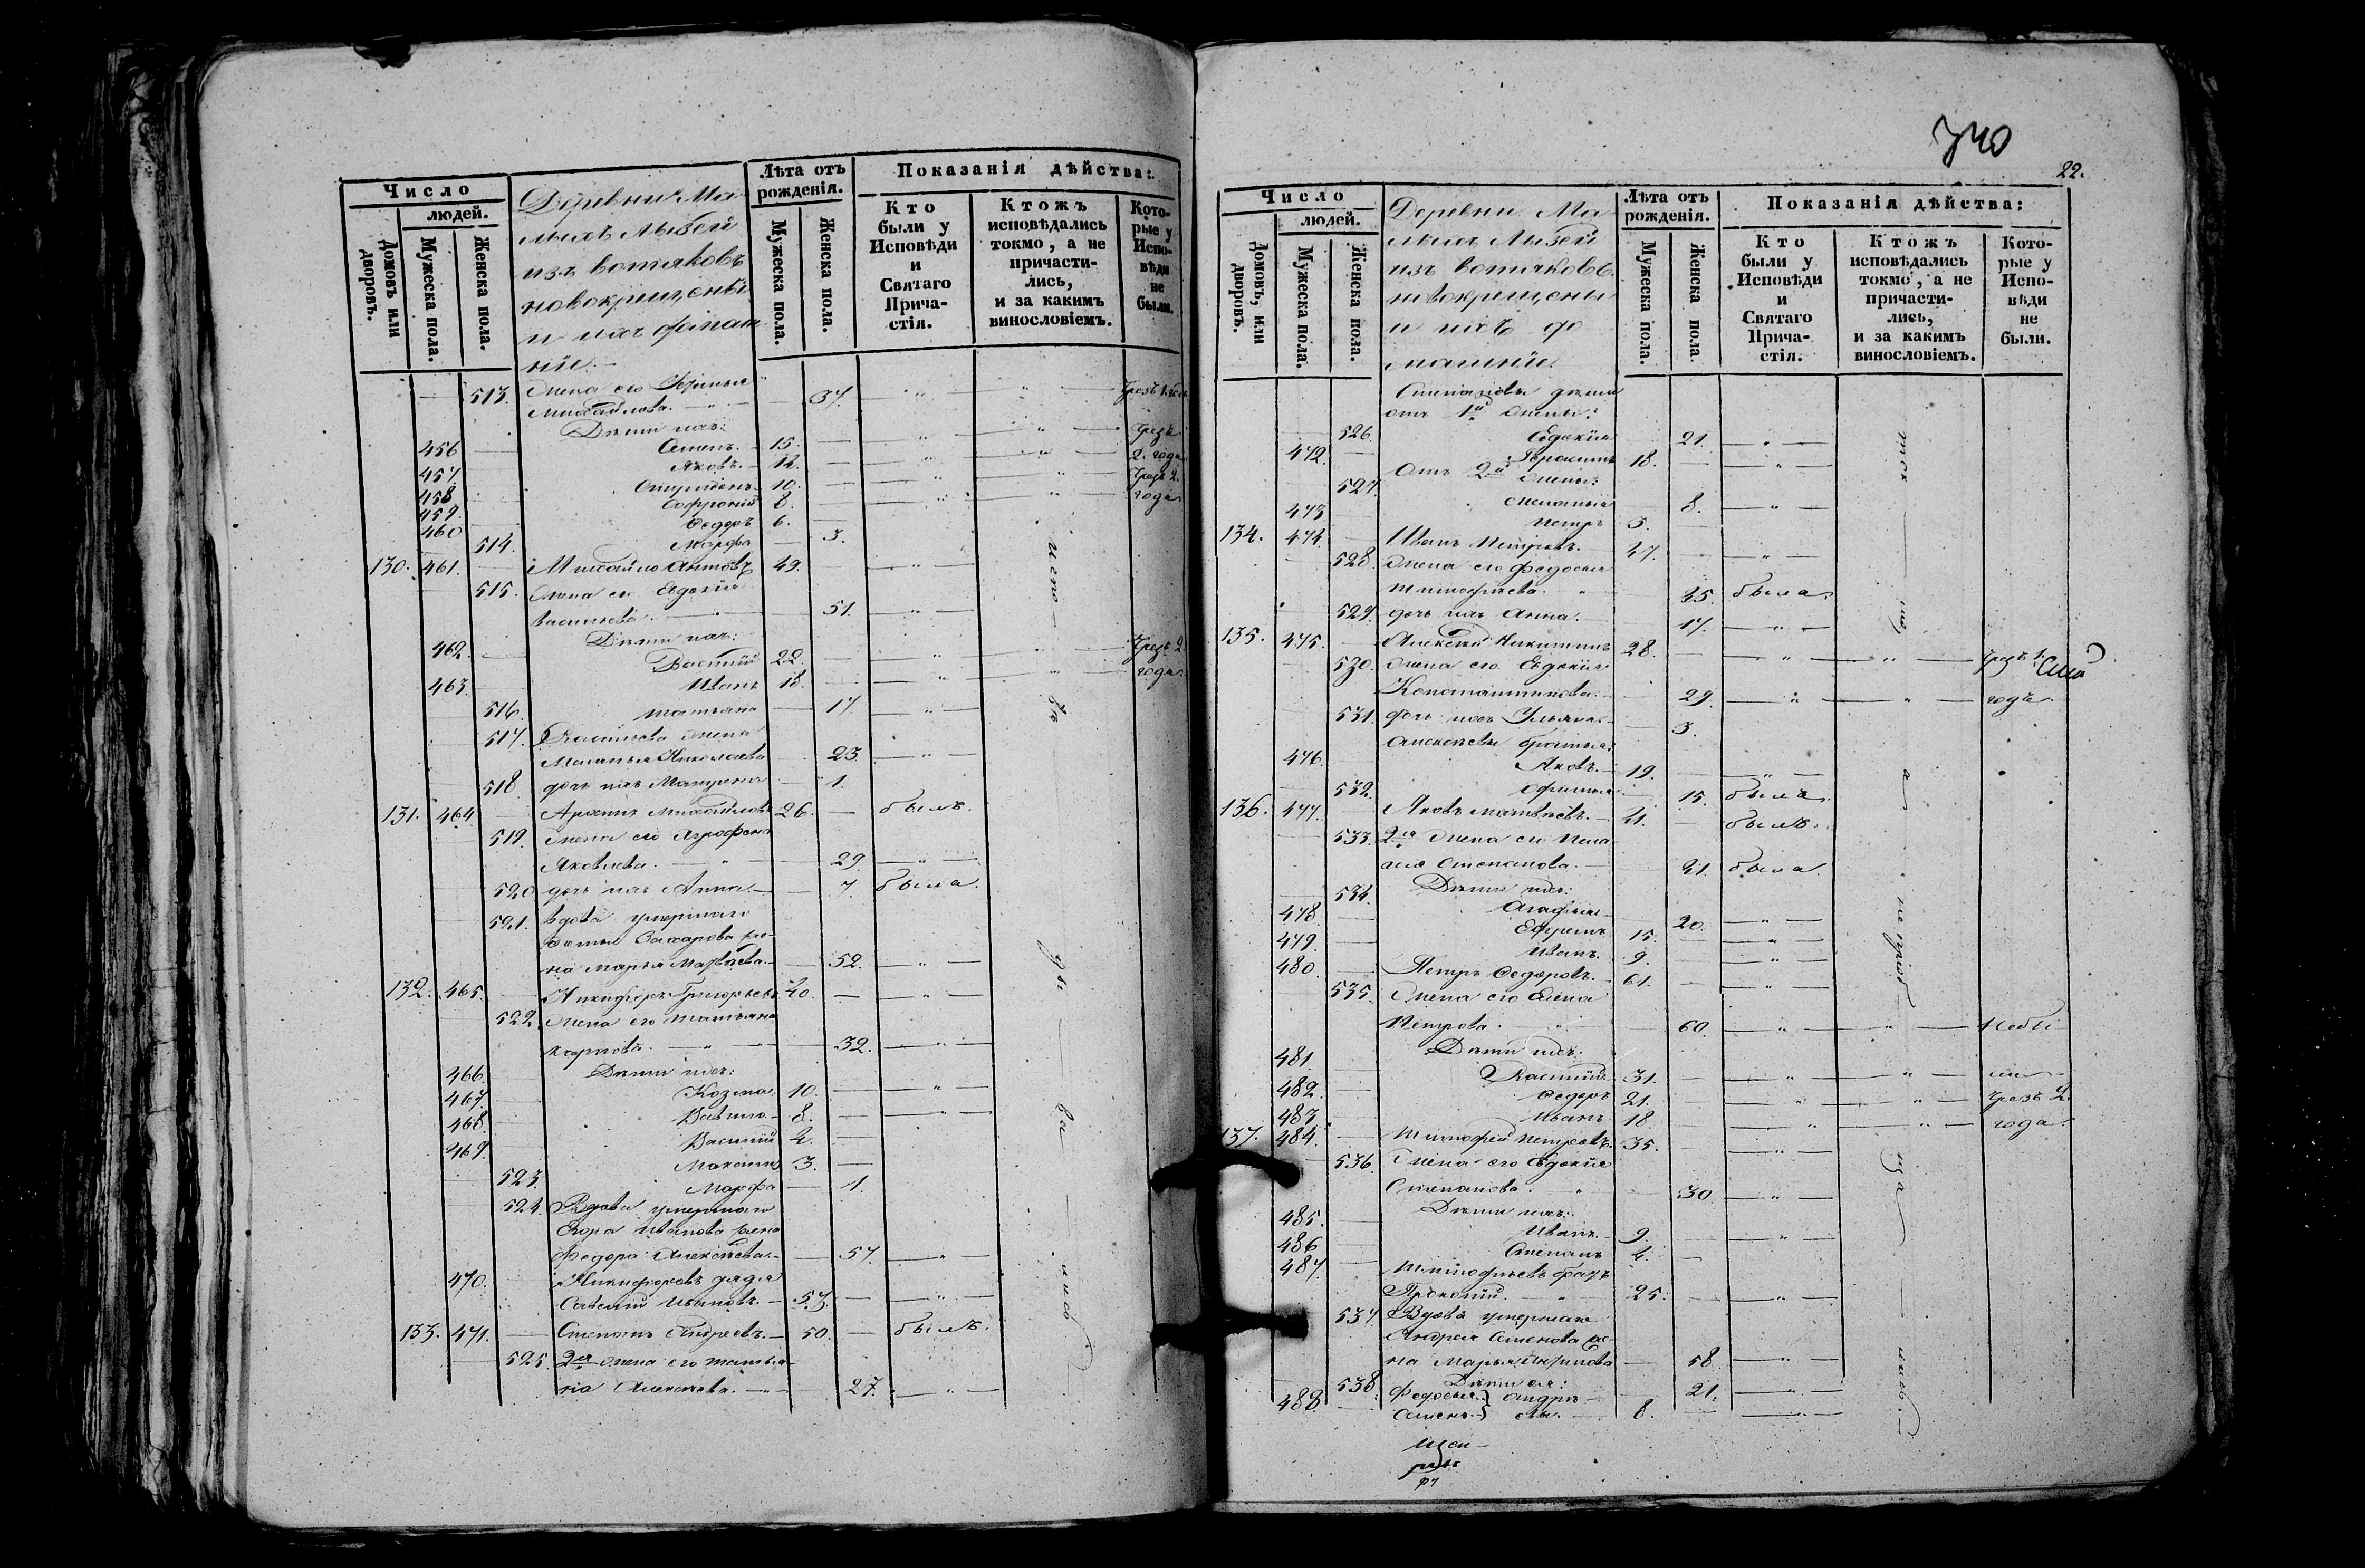 Число
людей.
Домовъ или дворовъ.
Мужеска пола.
Женска пола.
Деревни Ма-
лыхъ Лызей
изъ вотяковъ
новокрещены
и ихъ домаш
ніе:
Лѣта отъ рожденія.
Мужеска пола.
Женска пола.
Показанія дѣйства:
Кто были у Исповѣди и Святаго Прича-стія.
Ктожъ исповѣдались токмо, а не причасти-лись, и за какимъ винословіемъ.
Кото-рые у Испо-вѣди не были.
513. Жена его Ирина
Михайлова. 37.
Дѣти ихъ:
456 Семенъ. 15. Чрезъ
457. Яковъ. 12. 2. года
458 Спиридонъ 10. Чрезъ 2.
459. Софроній 8. года
460 Федоръ 6.
514. Марфа 3.
130. 461. Михайло Антоновъ 49.
515. Жена его Евдокія
Васильева. 51.
Дѣти ихъ:
462. Василій 22. Чрезъ 2
463. Иванъ 18. года.
516. Татьяна 17.
517. Васильева жена
Маланья Николаева 23.
518. дочь ихъ Матрена 1.
131. 464. Архипъ Михайловъ 26. былъ.
519. Жена его Агрофена
Яковлева. 29.
520 дочь ихъ Анна. 7. была.
521. вдова умершаго
Захарова же-
на Марья Матвѣева. 52.
132. 465. Никифоръ Григорьевъ 40.
522. Жена его Татьяна
Карпова. 32.
Дѣти ихъ:
466. Козма. 10.
467. Вавило. 8.
468. Василій 4.
469. Максимъ 3.
523. Марфа 1.
524. Вдова умершаго
Егора Иванова жена
Федора Алексѣева. 57.
470. Никифоровъ дядя
Савелій Ивановъ. 53.
133. 471. Степанъ Андреевъ. 50. былъ.
525. 2я жена его Татья-
на Алексѣева. 27.
исповѣдывались
740
22.
Число
людей.
Домовъ, или дворовъ.
Мужеска пола.
Женска пола.
Деревни Ма
лыхъ Лызей
изъ вотяковъ
новокрещены
и ихъ до
машніе.
Лѣта отъ рожденія.
Мужеска пола.
Женска пола.
Показанія дѣйства:
Кто были у Исповѣди и Святаго Прича-стія.
Ктожъ исповѣдались токмо, а не причасти-лись, и за какимъ винословіемъ.
Кото-рые у Испо-вѣди не были.
Степановы дѣти
отъ 1й жены:
526. Евдокія 21.
472. Герасимъ 18.
Отъ 2й жены:
527.
473 Петръ 5.
134. 474. Иванъ Петровъ. 47.
528. Жена его Федосья
Тимофѣева. 45. была.
529. дочь ихъ Анна. 17.
135. 475. Алексѣй Никитинъ 28. Чрезъ 1.
530. Жена его Евдокія
Константинова. 29. годъ.
531. дочь ихъ Ульяна. 3.
Алексѣевы братья:
476. Яковъ. 19.
532. 15. была.
136. 477. Яковъ Матвѣевъ. 41. былъ.
533. 2я жена его Пела-
гея Степанова. 41. была.
Дѣти ихъ:
534. Агафья 20.
478. Ефремъ 15.
479. Иванъ. 9.
480. Петръ Федоровъ. 61.
535. Жена его Елена
Петрова. 60. Небы
Дѣти ихъ:
481. Василій 31. ли
482. Федоръ 21. Чрезъ 2.
483 Иванъ 18. года.
137. 484. Тимофей Петровъ. 35.
536. Жена его Евдокія
Степанова. 30.
Дѣти ихъ:
485. Иванъ. 9.
486 Степанъ 4.
487. Тимофѣевъ братъ
Прокопій. 25.
537 Вдова умершаго
Андрея Семенова же-
на Марья 58.
Дѣти ея:
538 Федосья 21.
488. Семенъ 8.